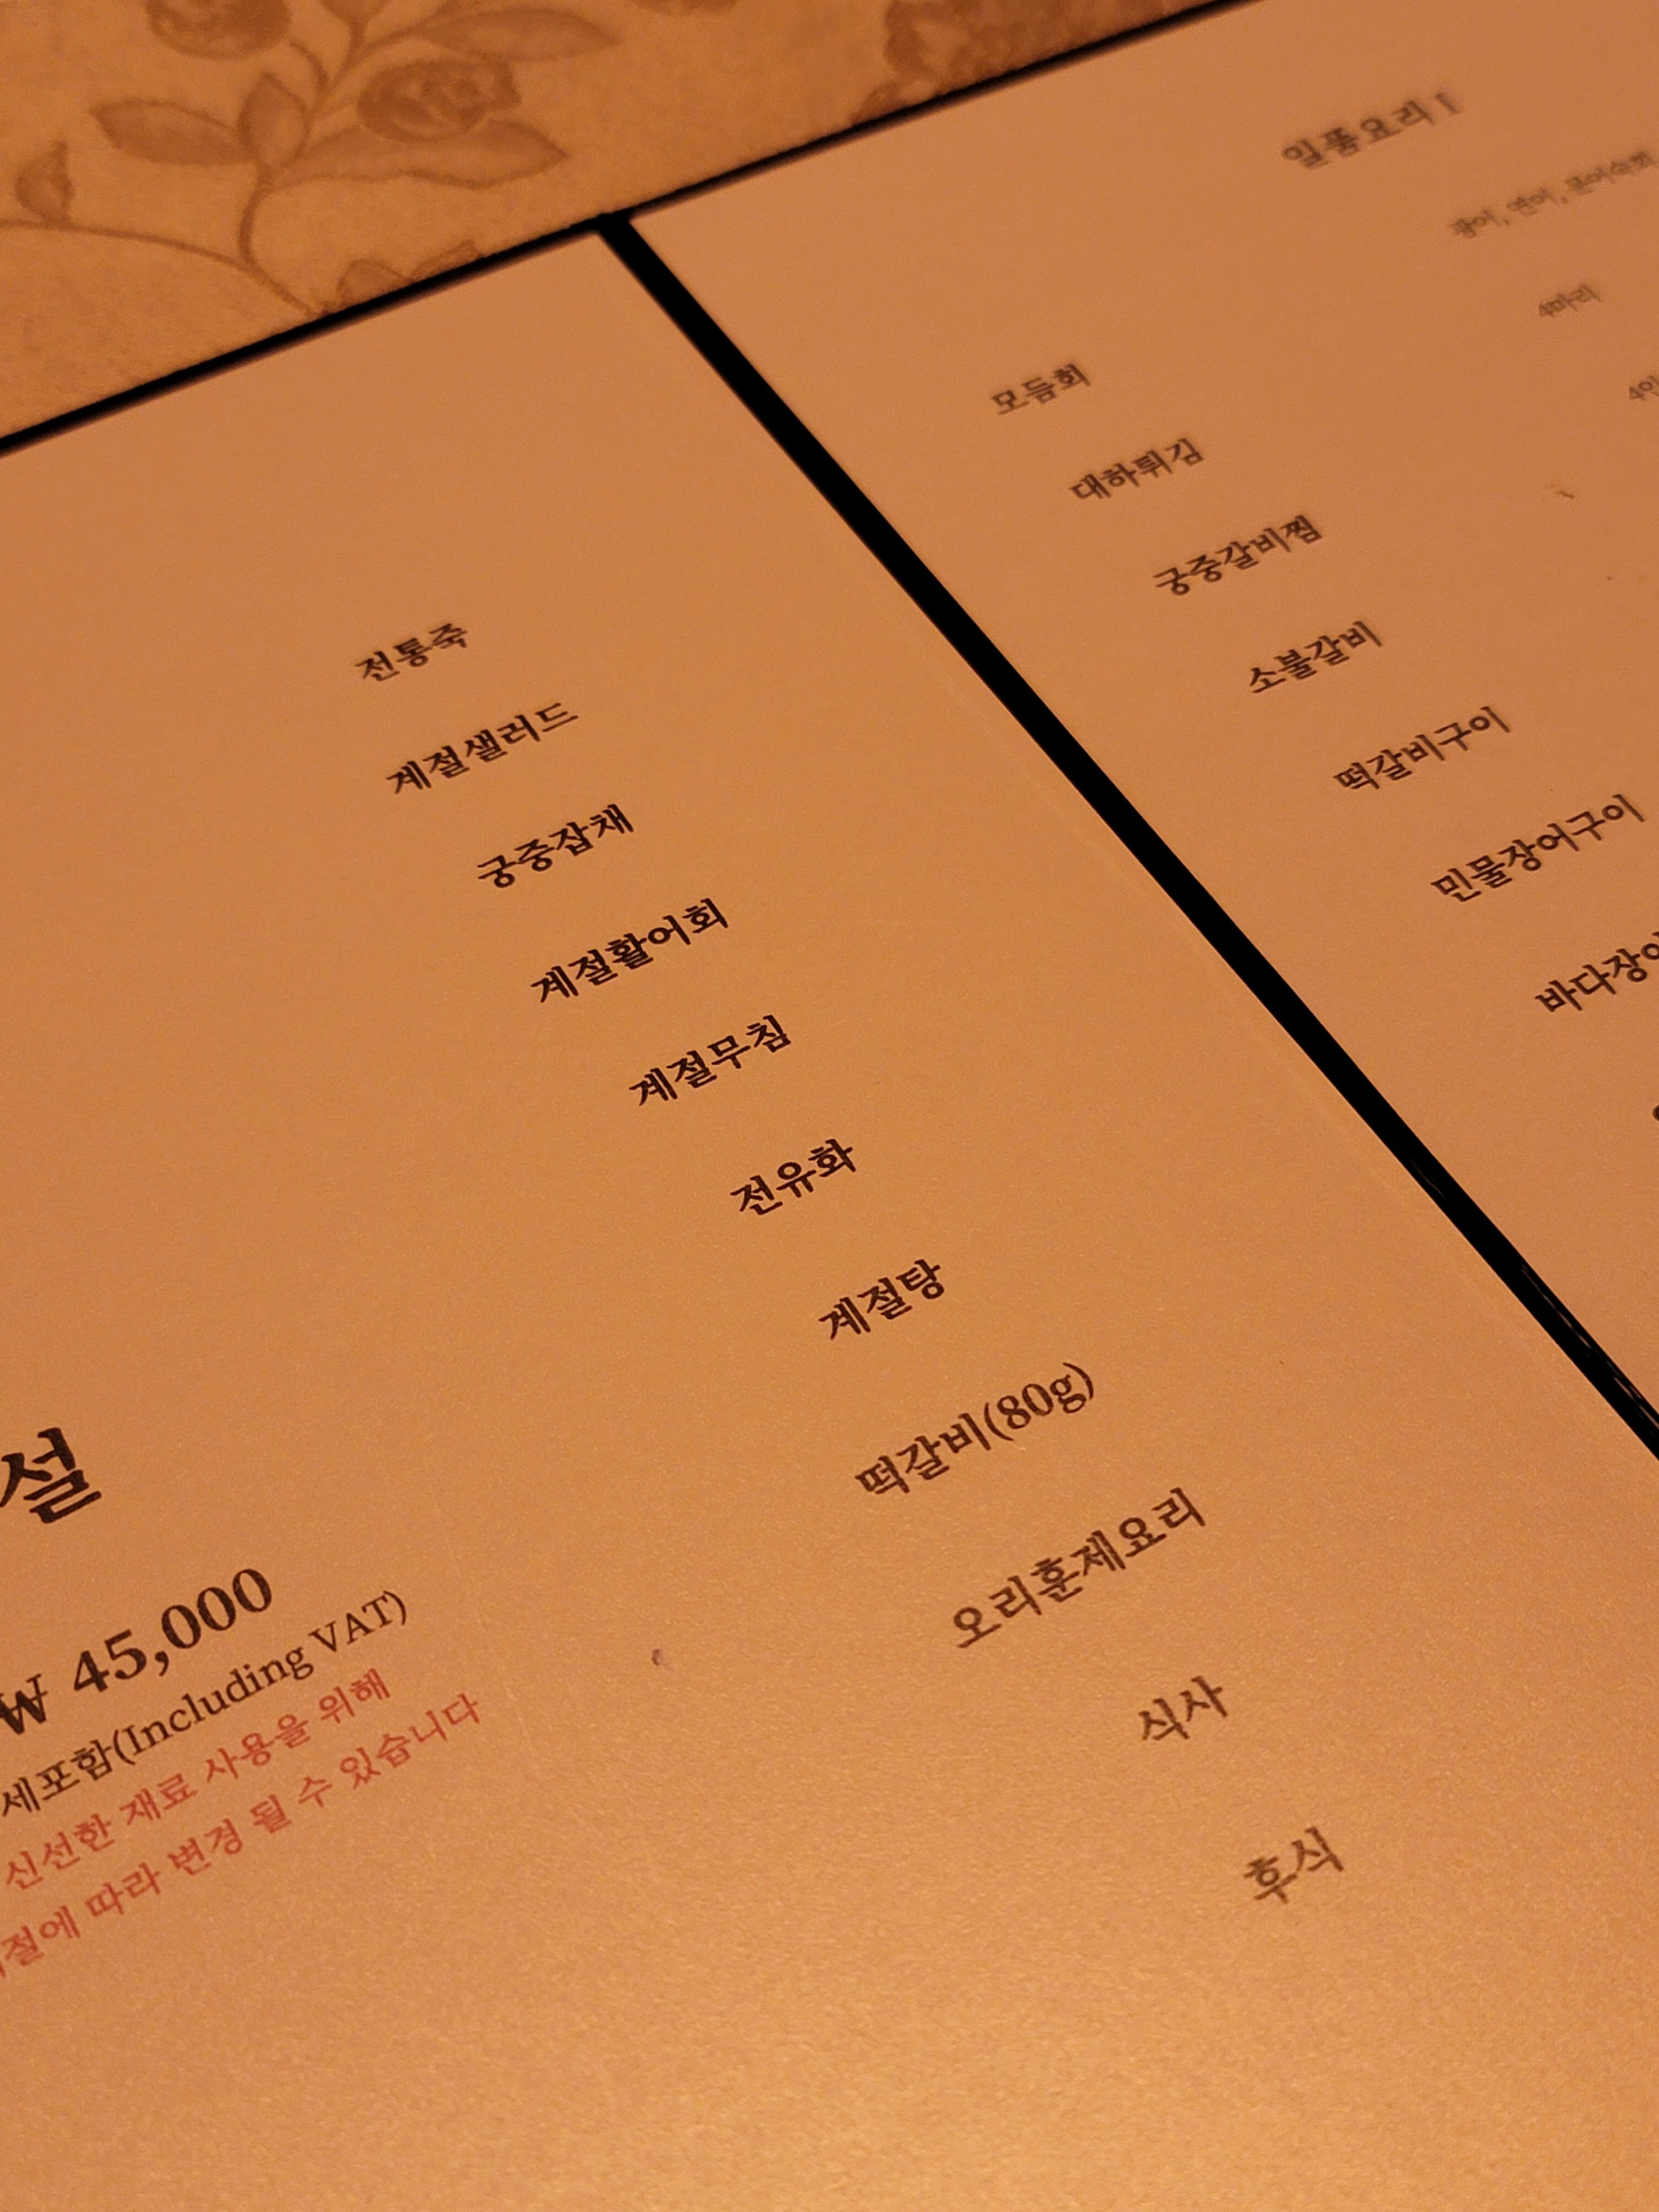 설
₩ 45,000
세포함(Including VAT)
신선한 재료 사용을 위해
절에 따라 변경 될 수 있습니다
전통죽
계절샐러드
궁중잡채
계절활어회
계절무침
전유화
계절탕
떡갈비(80g)
오리훈제요리
식사
후식
일품요리 I
광어, 연어, 문어숙회
4마리
모듬회
대하튀김
궁중갈비찜
소불갈비
떡갈비구이
민물장어구이
바다장어